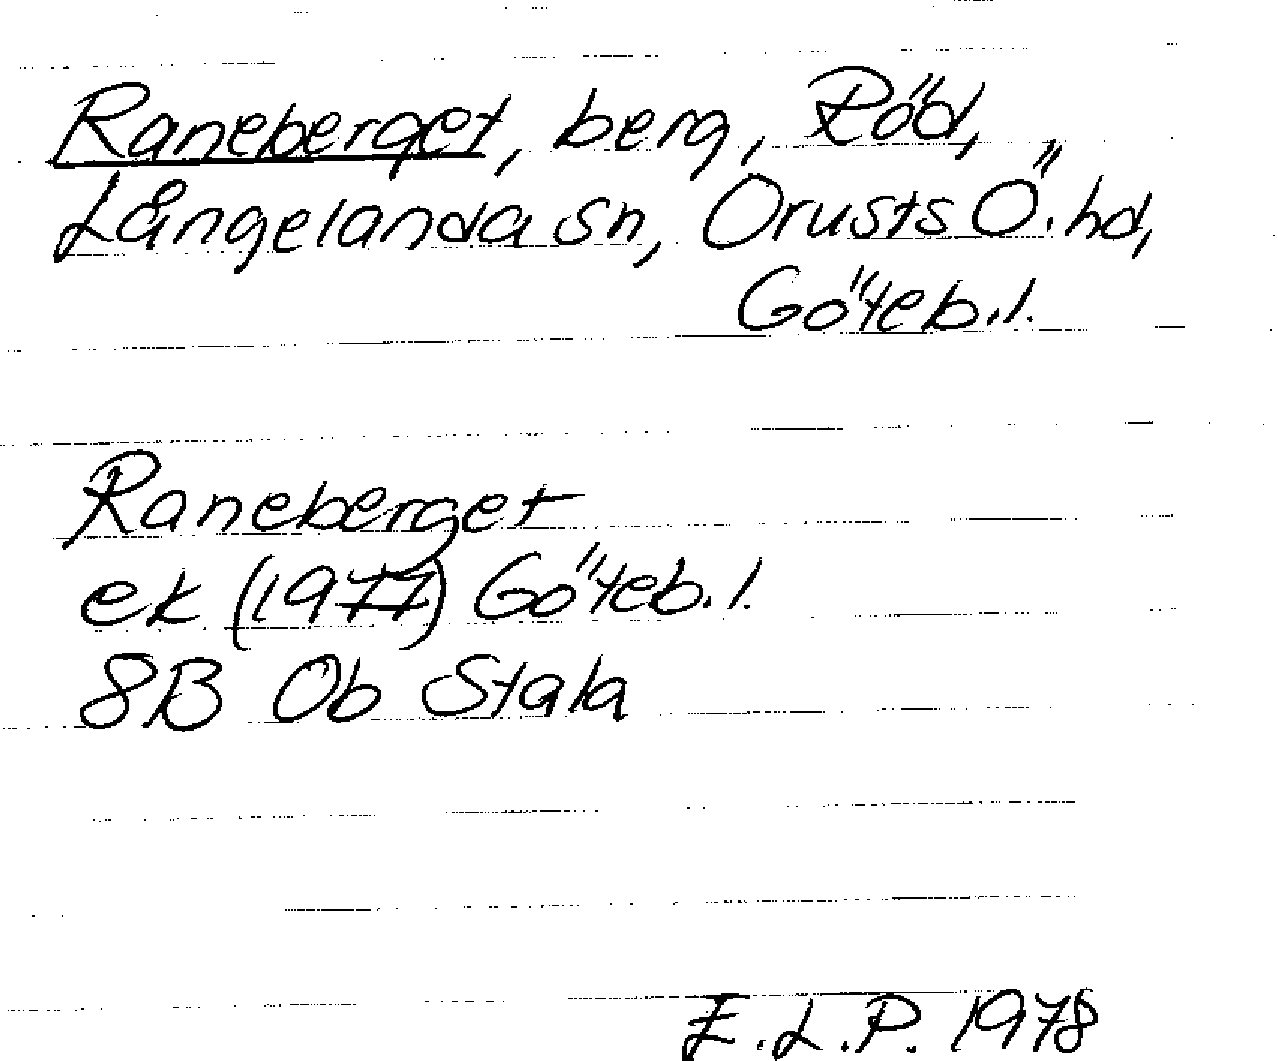 Raneberget, berg, Röd,
Långelanda sn, Orusts Ö. hd,
Göteb. l.
Raneberget
ek (1977) Göteb. l.
8B 0b Stala
E.L.P. 1978